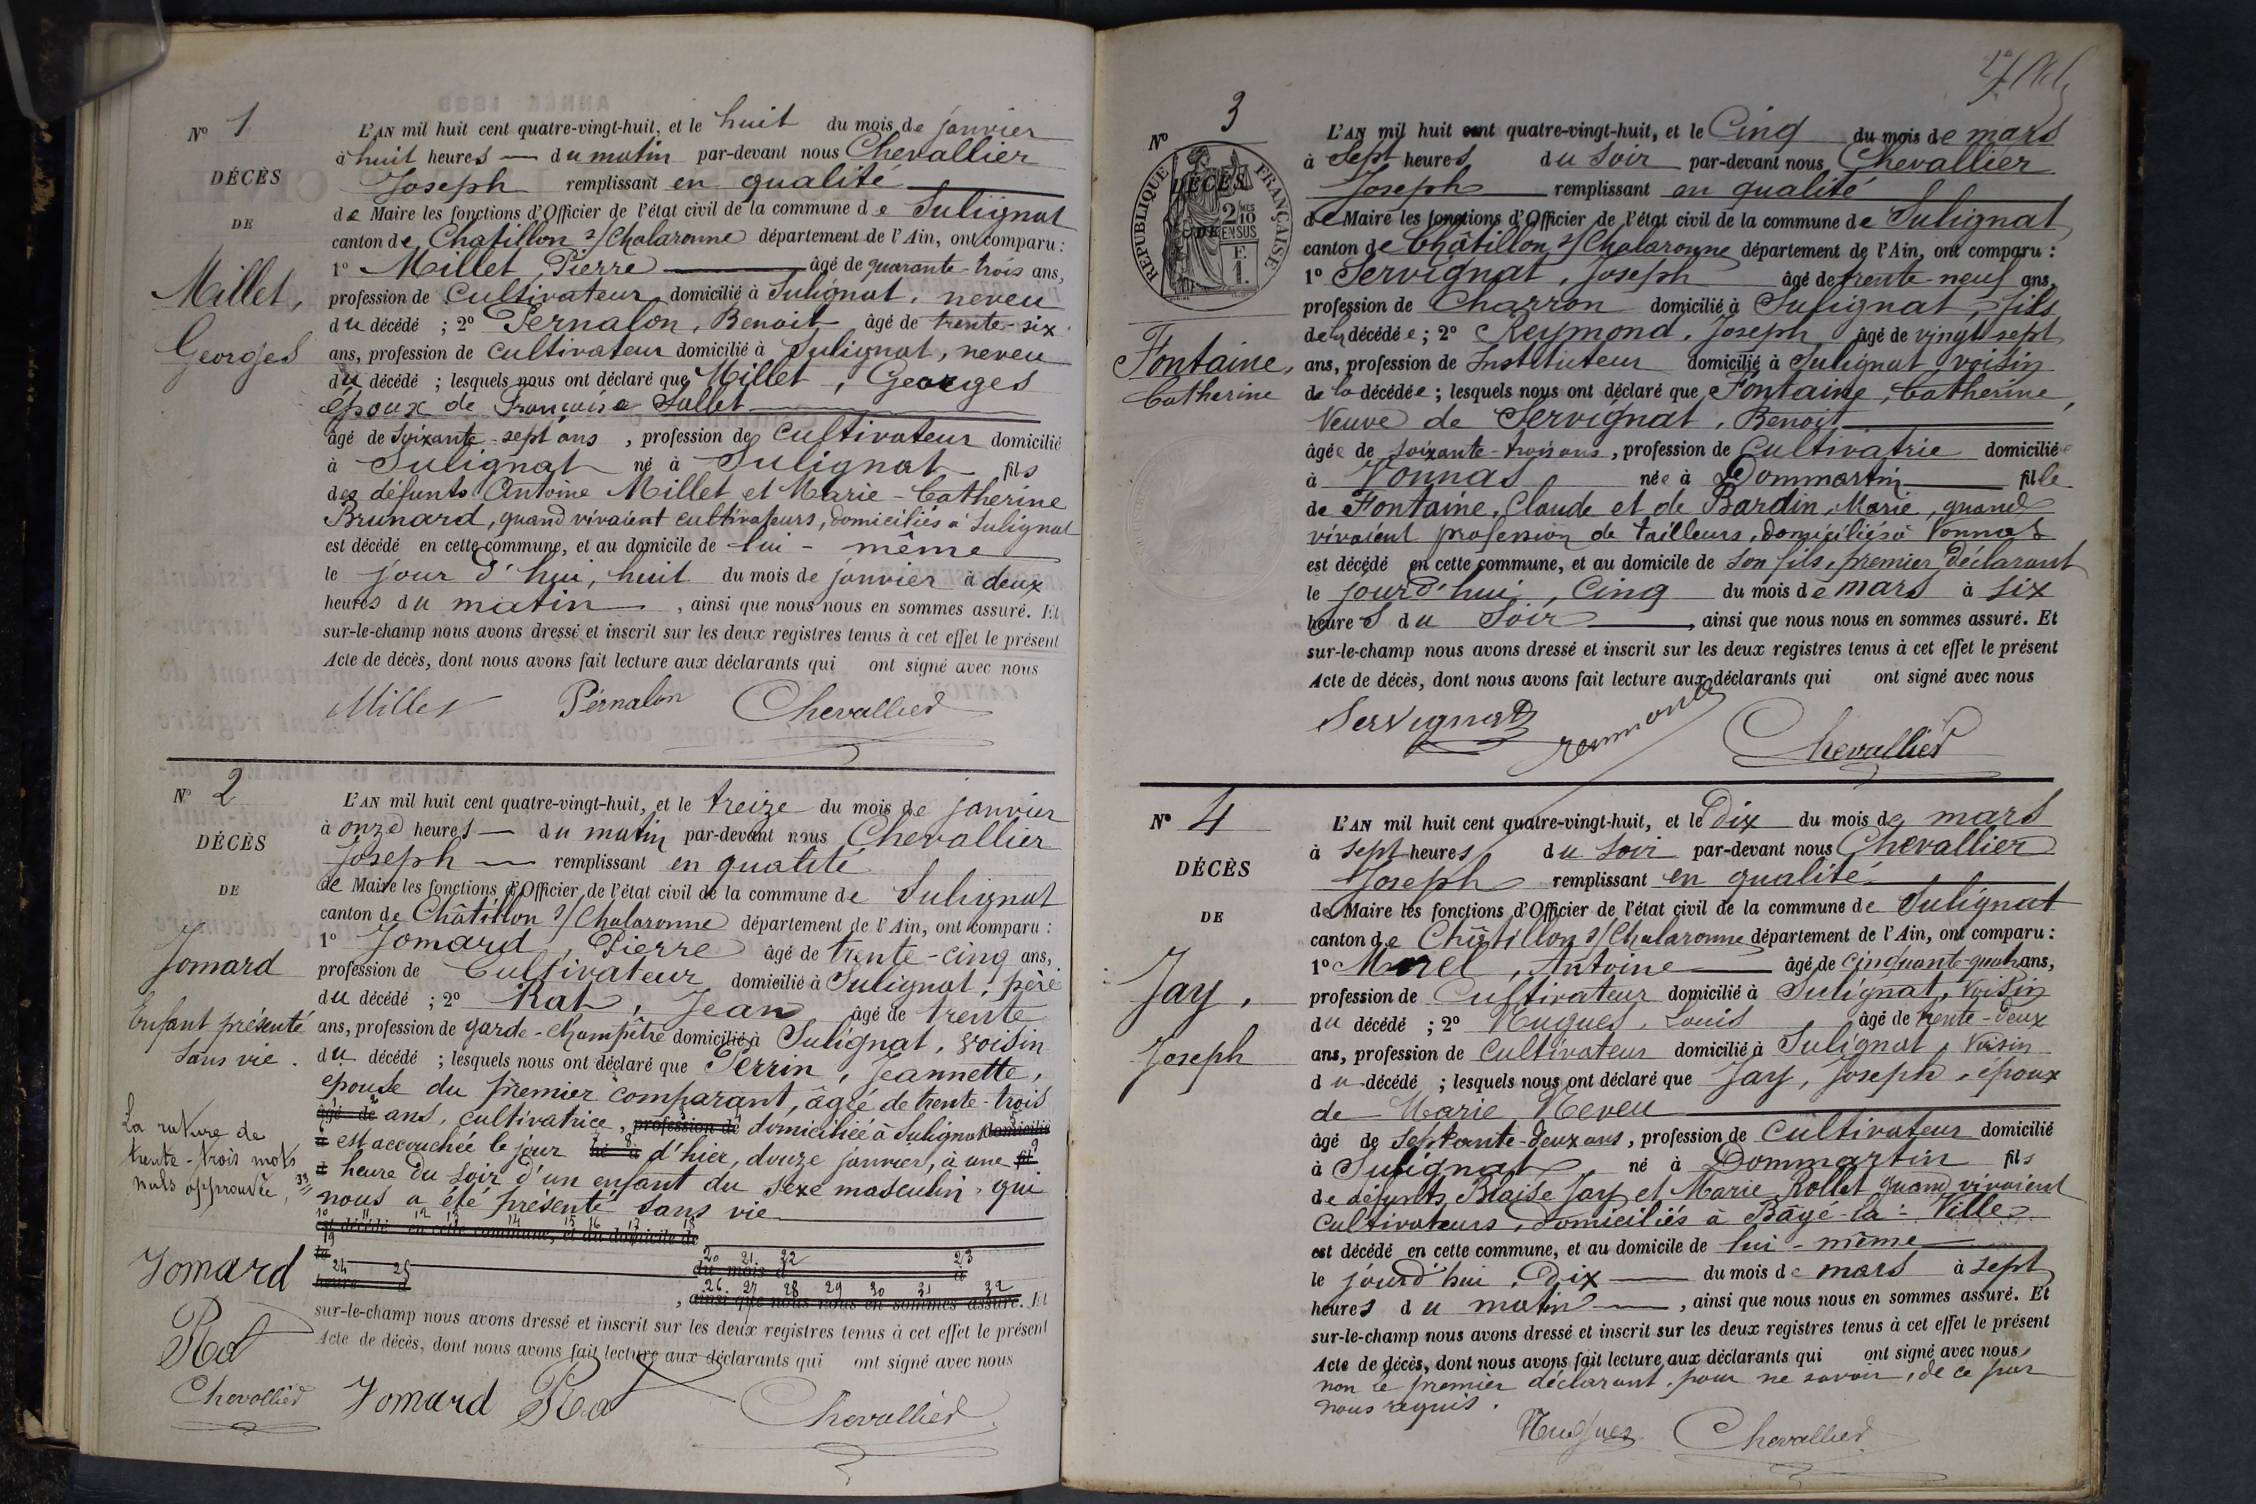 N° 1
DÉCÈS
DE
Millet,
Georges
L'AN mil huit cent quatre-vingt-huit, et le huit du mois de janvier
à huit heures — du matin par-devant nous Chevallier
Joseph remplissant en qualité
de Maire les fonctions d'Officier de l'état civil de la commune de Sulignat
canton de Chatillon s/ Chalaronne département de l'Ain, ont comparu :
1° Millet, Pierre âgé de quarante-trois ans,
profession de Cultivateur domicilié à Sulignat, neveu
du décédé ; 2° Pernalon, Benoit âgé de trente-six
ans, profession de cultivateur domicilié à Sulignat, neveu
du décédé ; lesquels nous ont déclaré que Millet, Georges
époux de Françoise Sallet
âgé de soixante-sept ans, profession de cultivateur domicilié
à Sulignat né à Sulignat fils
des défunts Antoine Millet et Marie-Catherine
Brunard, quand vivaient cultivateurs, domiciliés à Sulignat
est décédé en cette commune, et au domicile de lui-même
le jour d'hui, huit du mois de janvier à deux
heures du matin, ainsi que nous nous en sommes assuré. Et
sur-le-champ nous avons dressé et inscrit sur les deux registres tenus à cet effet le présent
Acte de décès, dont nous avons fait lecture aux déclarants qui ont signé avec nous
Millet Pérnalon Chevallier
N° 2
DÉCÈS
DE
Jomard
Enfant présenté
sans vie.
La rature de
trente-trois mots
nuls approuvée, 33
Jomard
Rat
Chevallier
L'AN mil huit cent quatre-vingt-huit, et le treize du mois de janvier
à onze heures — du matin par-devant nous Chevallier
Joseph — remplissant en qualité
de Maire les fonctions d'Officier de l'état civil de la commune de Sulignat
canton de Châtillon s/ Chalaronne département de l'Ain, ont comparu :
1° Jomard, Pierre âgé de trente-cinq ans,
profession de Cultivateur domicilié à Sulignat, père
du décédé ; 2° Rat, Jean âgé de trente
ans, profession de garde-champêtre domicilié à Sulignat, voisin
du décédé ; lesquels nous ont déclaré que Perrin, Jeannette,
épouse du premier comparant, âgée de trente-trois
âgé de ans, cultivatrice, profession de domiciliée à Sulignat domicilié
à est accouchée le jour né à d'hier, douze janvier, à une fi
à heure du soir d'un enfant du sexe masculin, qui
nous a été présenté sans vie
10 11 12 13 14 15 16 17 18
est décédé en cette commune, et au domicile de
19
le 20 21 22 23
du mois d à
24 25
heure d
26 27 28 29 30 31 32
, ainsi que nous nous en sommes assuré. Et
sur-le-champ nous avons dressé et inscrit sur les deux registres tenus à cet effet le présent
Acte de décès, dont nous avons fait lecture aux déclarants qui ont signé avec nous
Jomard Rat Chevallier
N° 3
RÉPUBLIQUE FRANÇAISE
DÉCÈS
DE
2/10 EN SUS
F.
1.
Fontaine,
Catherine
L'AN mil huit cent quatre-vingt-huit, et le Cinq du mois de mars
à Sept heures du soir par-devant nous Chevallier
Joseph remplissant en qualité
de Maire les fonctions d'Officier de l'état civil de la commune de Sulignat
canton de Châtillon s/ Chalaronne département de l'Ain, ont comparu :
1° Servignat, Joseph âgé de trente-neuf ans,
profession de Charron domicilié à Sulignat, fils
de la décédée ; 2° Reymond, Joseph âgé de vingt sept
ans, profession de Instituteur domicilié à Sulignat voisin
de la décédée ; lesquels nous ont déclaré que Fontaine, Catherine,
Veuve de Servignat, Benoit
âgée de soixante-trois ans, profession de Cultivatrie domiciliée
à Vonnas née à Dommartin fille
de Fontaine, Claude et de Bardin, Marie, quand
vivaient profession de tailleurs, domiciliés à Vonnas
est décédé en cette commune, et au domicile de son fils, premier déclarant
le jourd'hui, Cinq du mois de mars à six
heures du Soir, ainsi que nous nous en sommes assuré. Et
sur-le-champ nous avons dressé et inscrit sur les deux registres tenus à cet effet le présent
Acte de décès, dont nous avons fait lecture aux déclarants qui ont signé avec nous
Servignat Reymond Chevallier
N° 4
DÉCÈS
DE
Jay,
Joseph
L'AN mil huit cent quatre-vingt-huit, et le Dix du mois de mars
à sept heures du soir par-devant nous Chevallier
Joseph remplissant en qualité
de Maire les fonctions d'Officier de l'état civil de la commune de Sulignat
canton de Châtillon s/ Chalaronne département de l'Ain, ont comparu :
1° Morel, Antoine âgé de cinquante-quatre ans,
profession de Cultivateur domicilié à Sulignat, voisin
du décédé ; 2° Nugues, Louis âgé de trente-deux
ans, profession de cultivateur domicilié à Sulignat, Voisin
du décédé ; lesquels nous ont déclaré que Jay, Joseph, époux
de Marie Neveu
âgé de septante-deux ans, profession de cultivateur domicilié
à Sulignat, né à Dommartin fils
de défunts Blaise Jay et Marie Rollet quand vivaient
cultivateurs, domiciliés à Bâgé-la-Ville
est décédé en cette commune, et au domicile de lui-même
le jourd'hui, Dix du mois de mars à sept
heures du matin, ainsi que nous nous en sommes assuré. Et
sur-le-champ nous avons dressé et inscrit sur les deux registres tenus à cet effet le présent
Acte de décès, dont nous avons fait lecture aux déclarants qui ont signé avec nous,
non le premier déclarant, pour ne savoir, de ce par
nous requis.
Nugues Chevallier